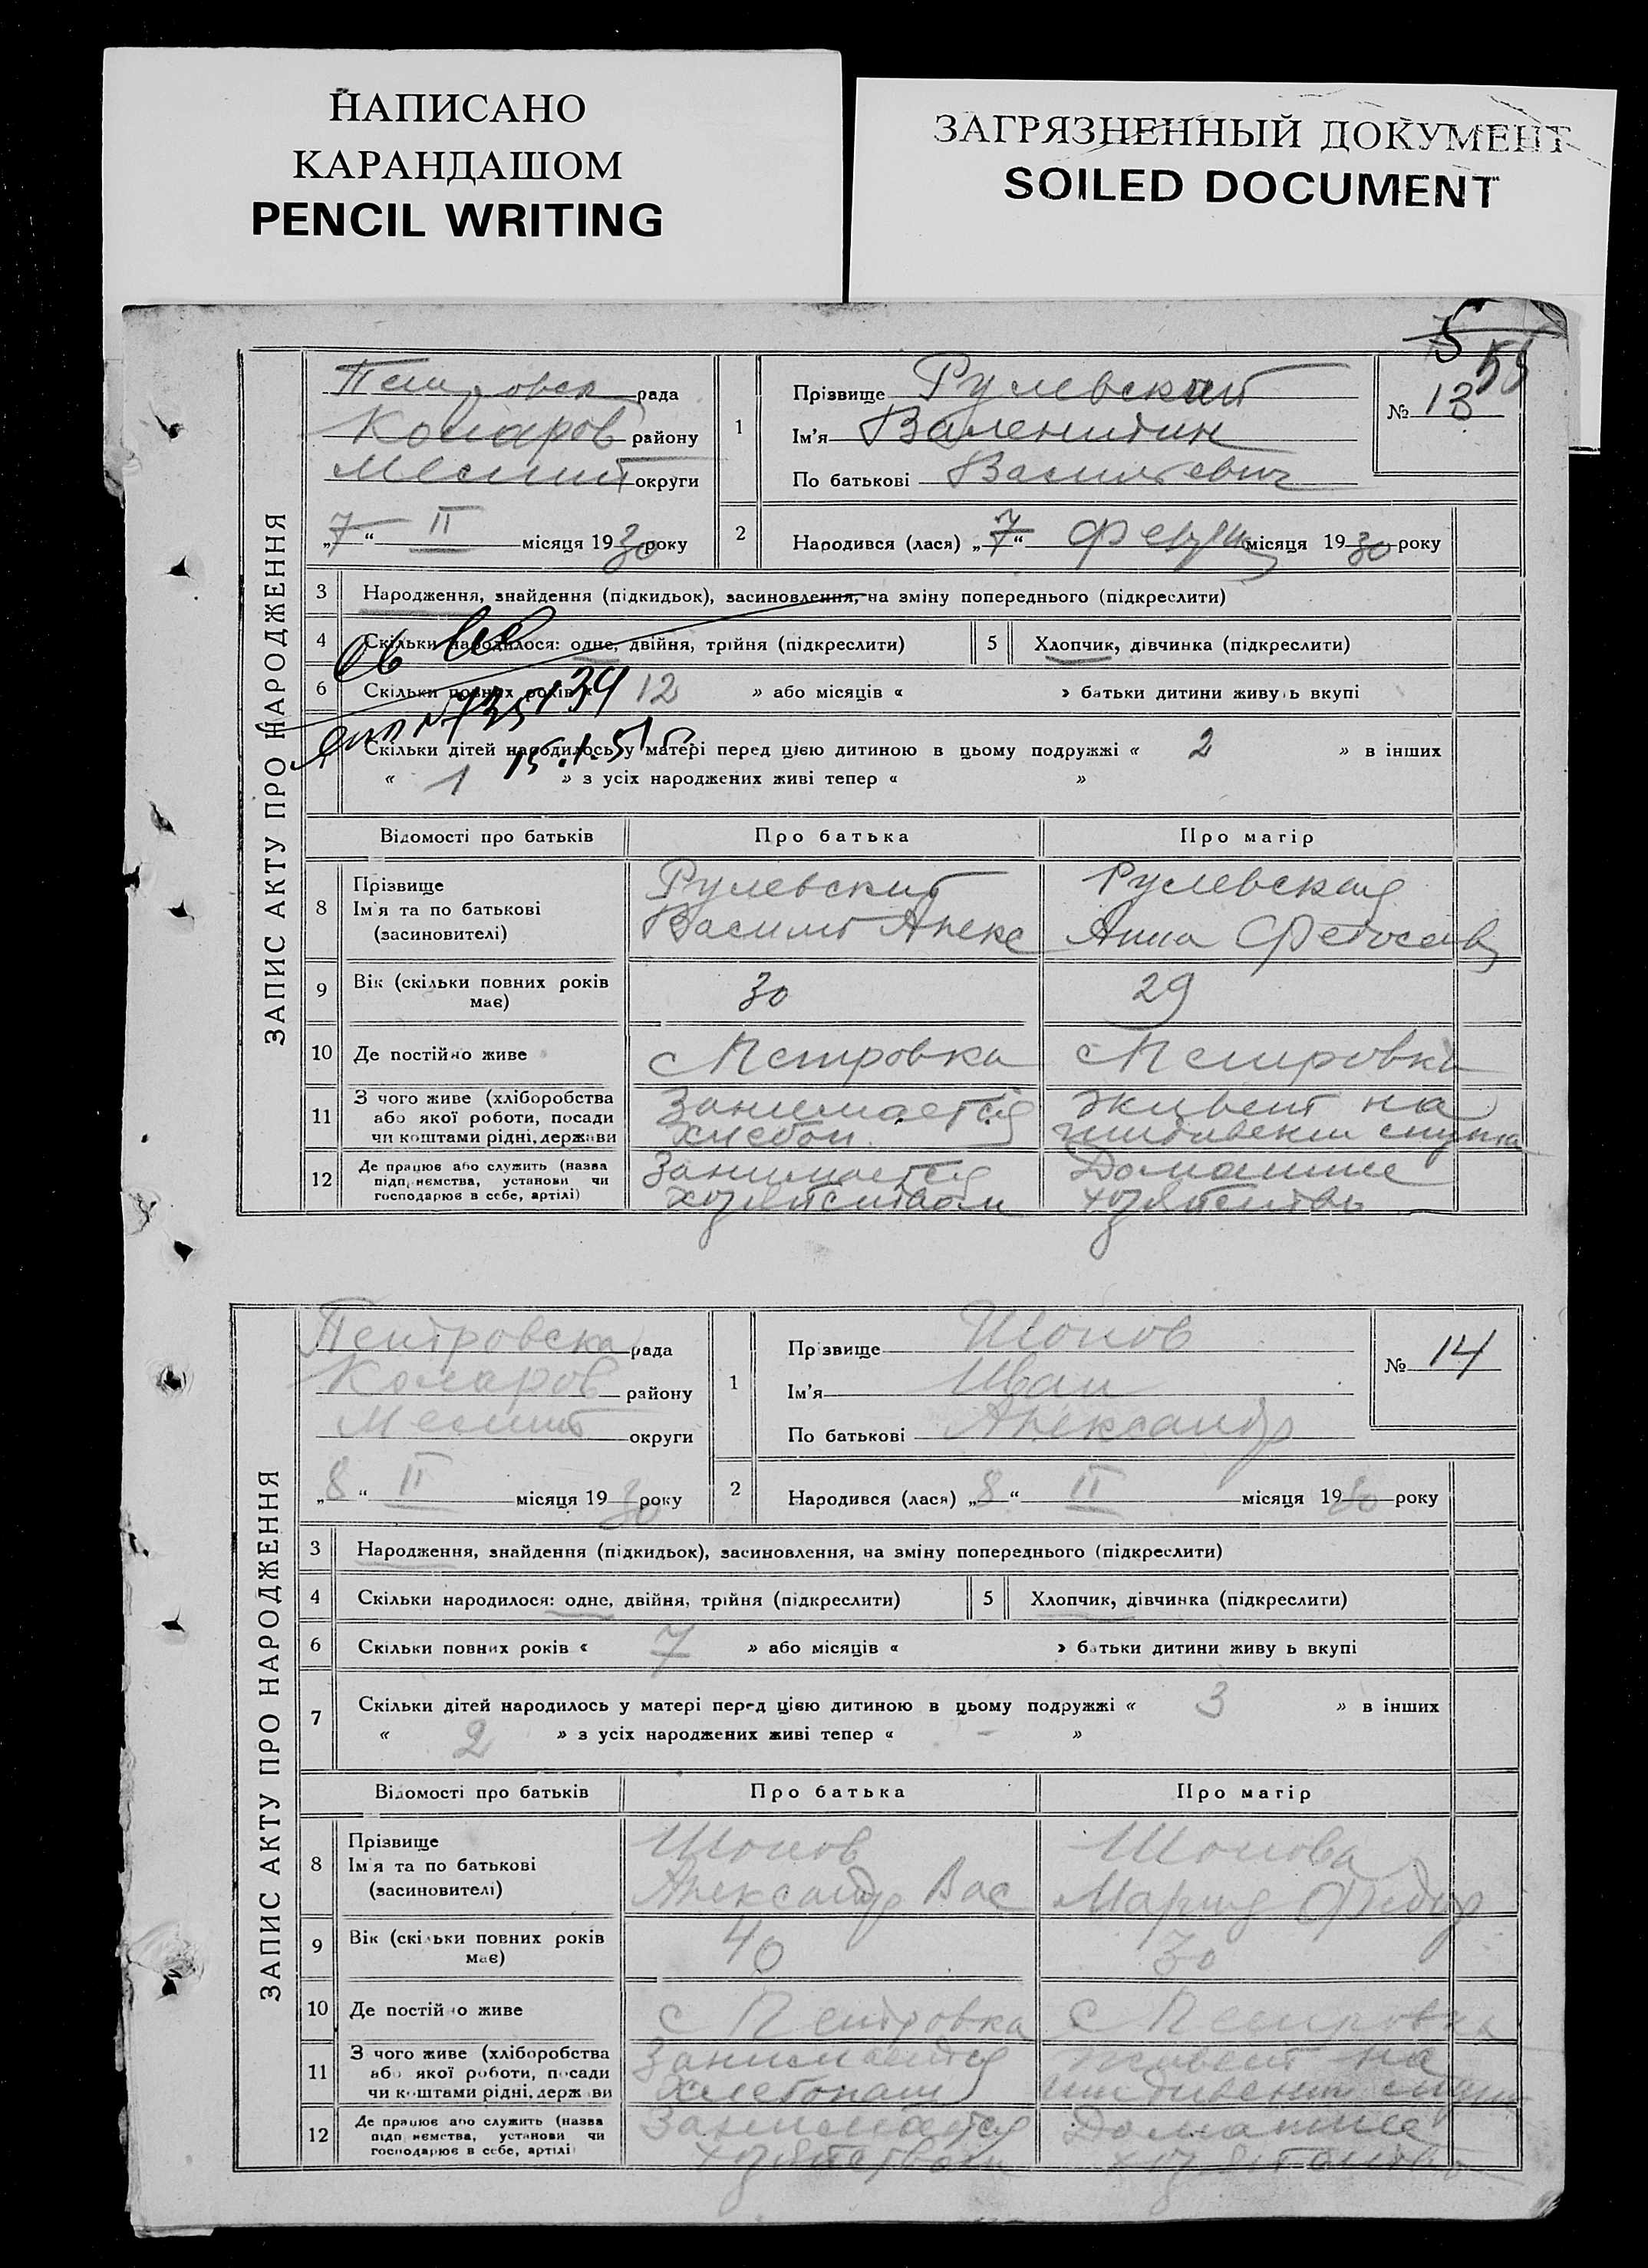 НАПИСАНО
КАРАНДАШОМ
PENCIL WRITING
ЗАГРЯЗНЕННЫЙ ДОКУМЕНТ
SOILED DOCUMENT
5
55
ЗАПИС АКТУ ПРО НАРОДЖЕННЯ
Петровск рада
Коларов району
Мелит округи
„7“ II місяця 1930 року
1
Прізвище Рулевский
Ім'я Валентин
По батькові Васильевич
№ 13
2
Народився (лася) „7“ Февр місяця 1930 року
3 Народження, знайдення (підкидьок), засиновлення, на зміну попереднього (підкреслити)
4 Скільки народилося: одне, двійня, трійня (підкреслити)
5 Хлопчик, дівчинка (підкреслити)
6 Скільки повних років « 12 » або місяців « » батьки дитини живуть вкупі
15.1.51 г.
7 Скільки дітей народилось у матері перед цією дитиною в цьому подружжі « 2 » в інших
« 1 » з усіх народжених живі тепер « »
Відомості про батьків Про батька Про матір
8 Прізвище
Ім'я та по батькові
(засиновителі)
Рулевский
Василь Алекс
Рулевская
Анна Федосеев
9 Вік (скільки повних років
має)
30 29
10 Де постійно живе с Петровка с Петровка
11 З чого живе (хліборобства
або якої роботи, посади
чи коштами рідні, держави
Занимается
хлебоп
живет на
иждивении
12 Де працює або служить (назва
підприємства, установи чи
господарює в себе, артілі)
Занимается
хозяйством
Домашнее
хозяйство
ЗАПИС АКТУ ПРО НАРОДЖЕННЯ
Петровска рада
Коларов району
Мелит округи
„8“ II місяця 1930 року
1
Прізвище Шопов
Ім'я Иван
По батькові Александр
№ 14
2
Народився (лася) „8“ II місяця 1930 року
3 Народження, знайдення (підкидьок), засиновлення, на зміну попереднього (підкреслити)
4 Скільки народилося: одне, двійня, трійня (підкреслити)
5 Хлопчик, дівчинка (підкреслити)
6 Скільки повних років « 7 » або місяців « » батьки дитини живуть вкупі
7 Скільки дітей народилось у матері перед цією дитиною в цьому подружжі « 3 » в інших
« 2 » з усіх народжених живі тепер « - »
Відомості про батьків Про батька Про матір
8 Прізвище
Ім'я та по батькові
(засиновителі)
Шопов
Александр Вас
Шопова
Мария Федор
9 Вік (скільки повних років
має)
40 30
10 Де постійно живе с Петровка с Петровка
11 З чого живе (хліборобства
або якої роботи, посади
чи коштами рідні, держави
Занимается
хлебопаш
живет на
иждивении
12 Де працює або служить (назва
підприємства, установи чи
господарює в себе, артілі)
Занимается
хозяйством
Домашнее
хозяйство